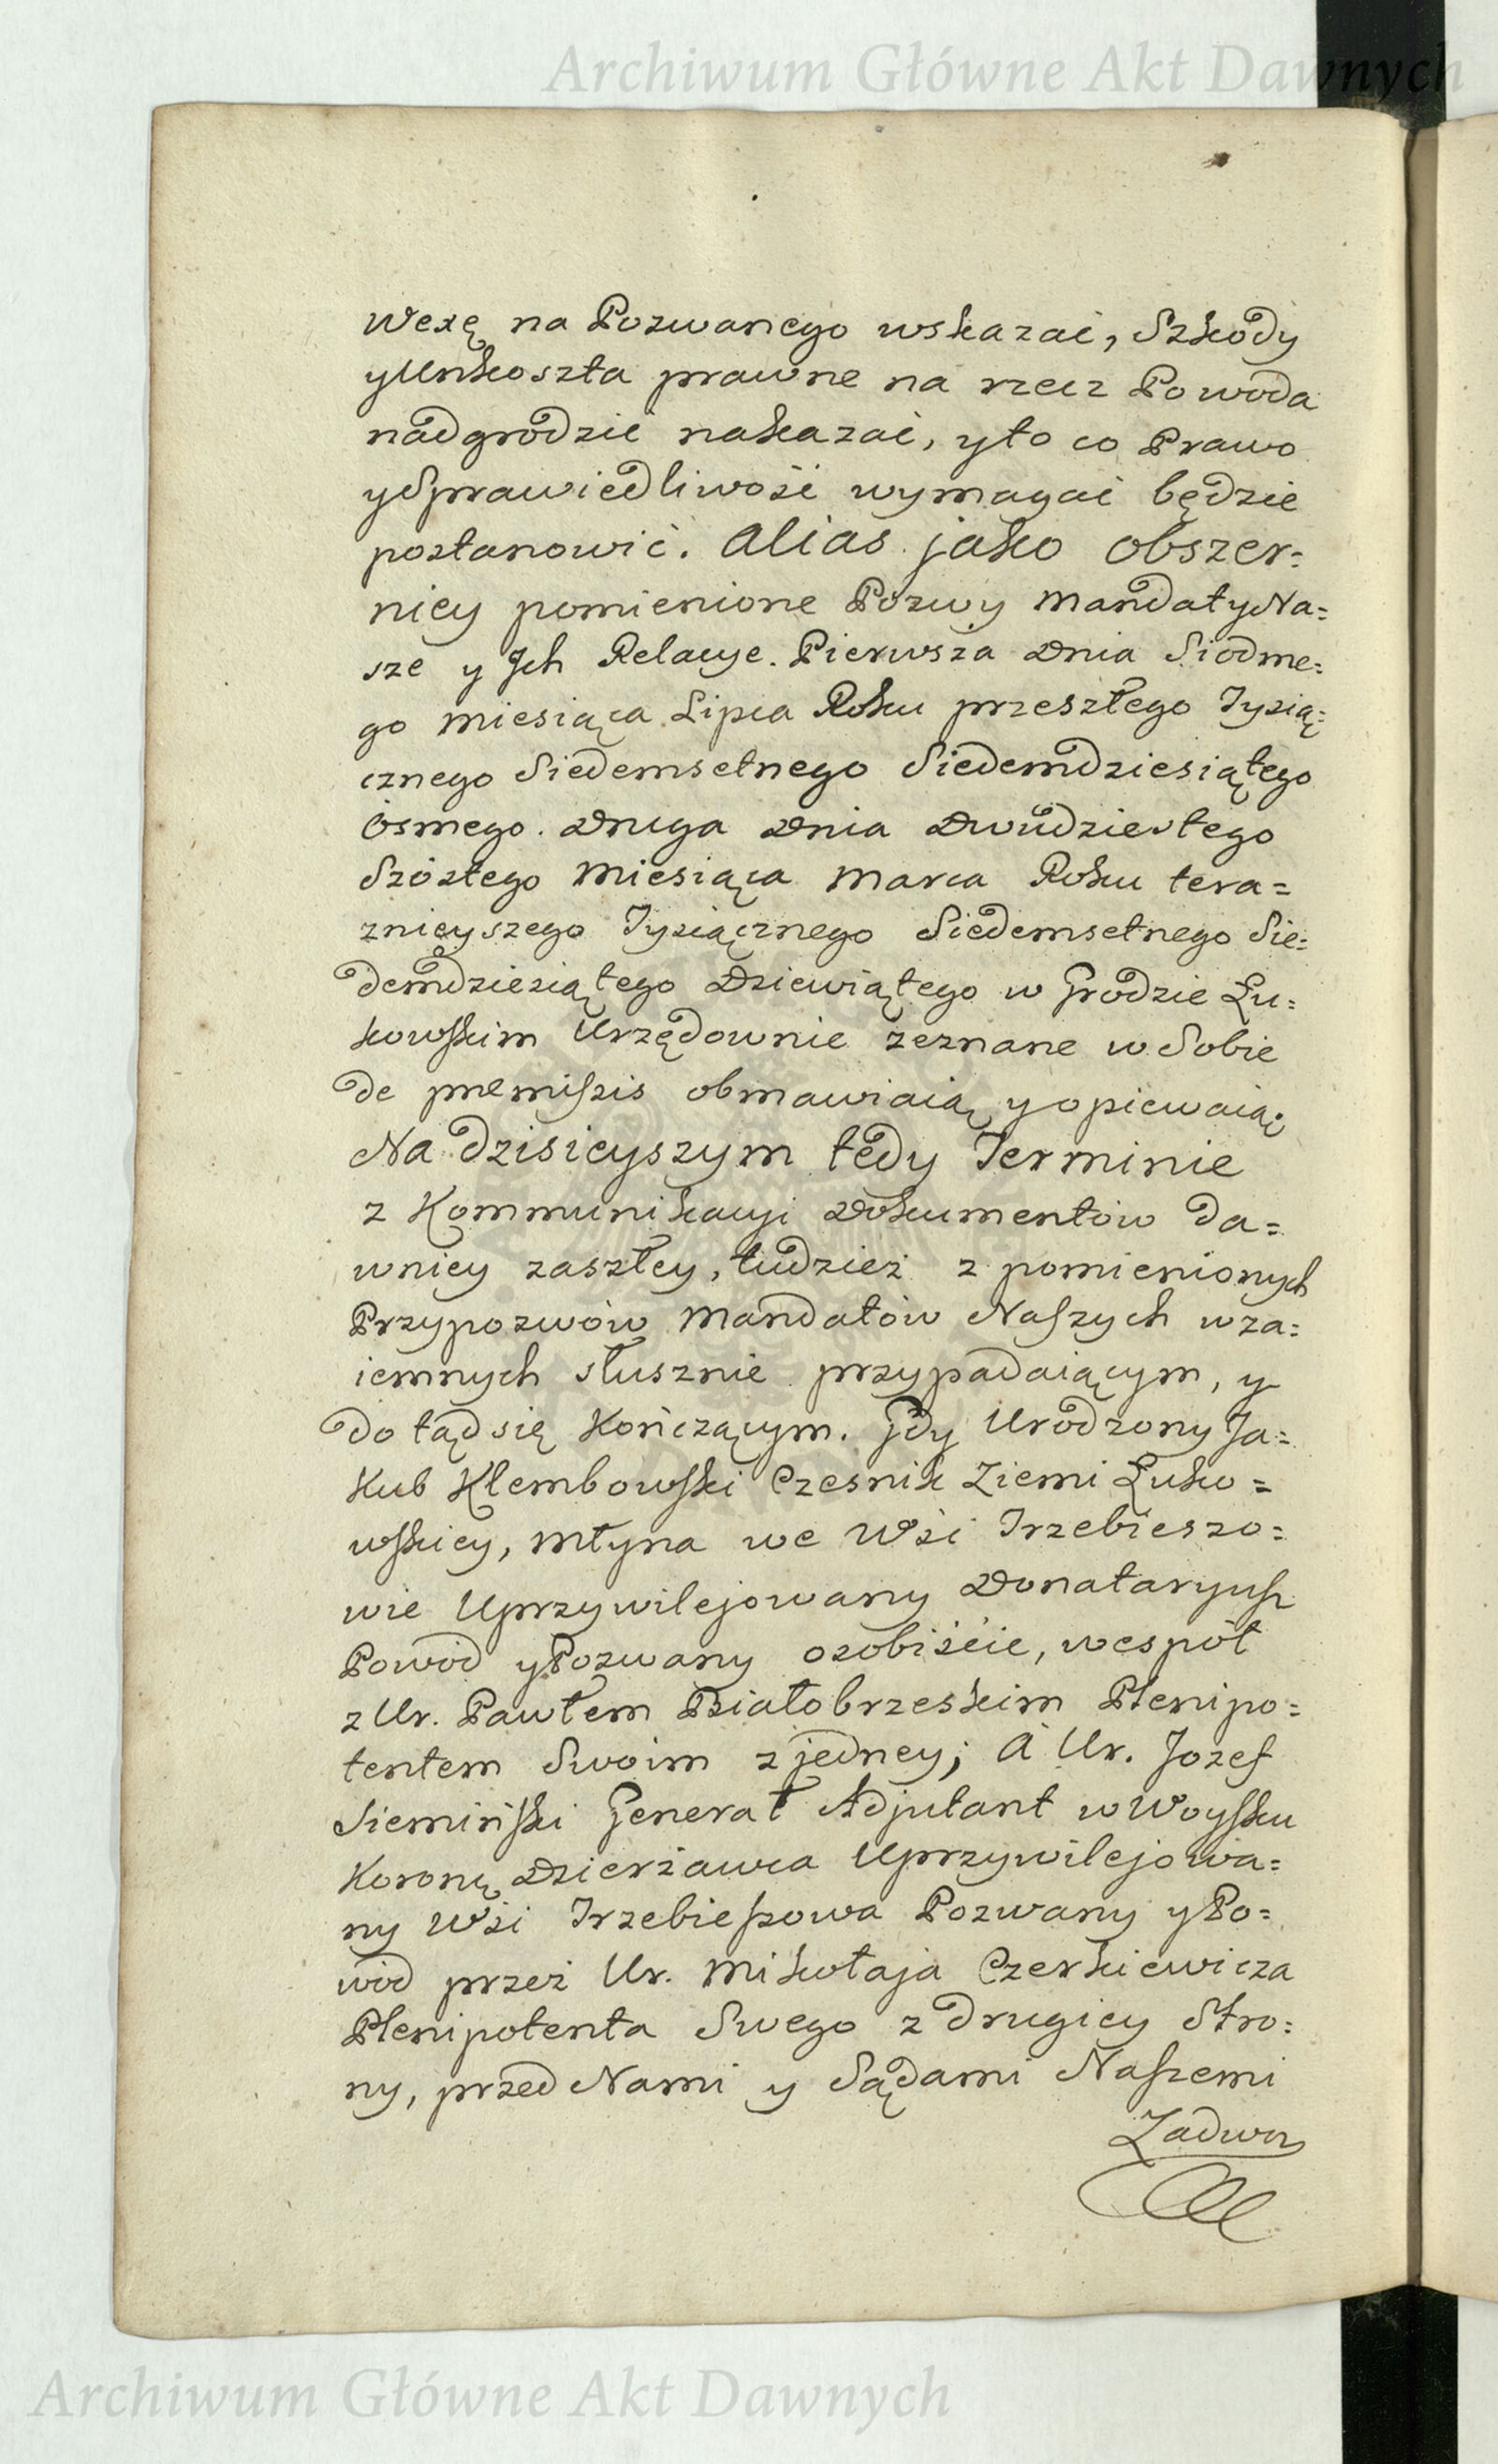 Archiwum Główne Akt Dawnych
Wexę na Pozwanego wskazać, Szkody
y Unkoszta prawne na rzecz Powoda
nadgrodzić nakazać, y to co Prawo
y Sprawiedliwość wymagać będzie
postanowić. Alias jako obszer=
niey pomienione Pozwy Mandaty Na=
sze y Ich Relacye. Pierwsza Dnia Siodme=
go Miesiąca Lipca Roku przeszłego Tysią=
cznego Siedemsetnego Siedemdziesiątego
Osmego. Druga Dnia Dwudziestego
Szóstego Miesiąca Marca Roku tera=
znieyszego Tysiącznego Siedemsetnego Sie=
demdziesiątego Dziewiątego w Grodzie Łu=
kowskim Urzędownie zeznane w Sobie
de premissis obmawiaią y opiewaią
Na dzisieyszym tedy Terminie
z Kommunikacyi Dokumentów da=
wniey zaszłey, tudzież z pomienionych
Przypozwów Mandatów Naszych wza=
iemnych słusznie przypadaiącym, y
do tąd się Kończącym. Gdy Urodzony Ja=
kub Klembowski Czesnik Ziemi Łuko=
wskiey, Młyna we Wsi Trzebieszo=
wie Uprzywilejowany Donataryusz
Powod y Pozwany osobiście, wespół
z Ur. Pawłem Białobrzeskim Plenipo=
tentem Swoim z jedney; A Ur. Jozef
Siemiński Generał Adjutant w Woysku
Koronę Dzierżawca Uprzywilejowa=
ny Wsi Trzebieszowa Pozwany y Po=
wod przez Ur. Mikołaja Czerkiewicza
Plenipotenta Swego z drugiey Stro=
ny, przed Nami y Sądami Naszemi
Zadwor
Archiwum Główne Akt Dawnych